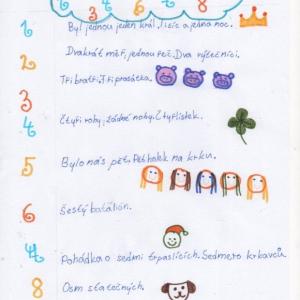 3 6 7 8
1 Byl jednou jeden král, Tisíc a jedna noc.
2 Dvakrát měř, jednou řež. Dva výtečníci.
3 Tři bratři. Tři prasátka.
4 Čtyři rohy, žádné nohy. Čtyřlístek.
5 Bylo nás pět. Pět holek na krku.
6 Šestý batálion.
7 Pohádka o sedmi trpaslících. Sedmero krkavců.
8 Osm statečných.